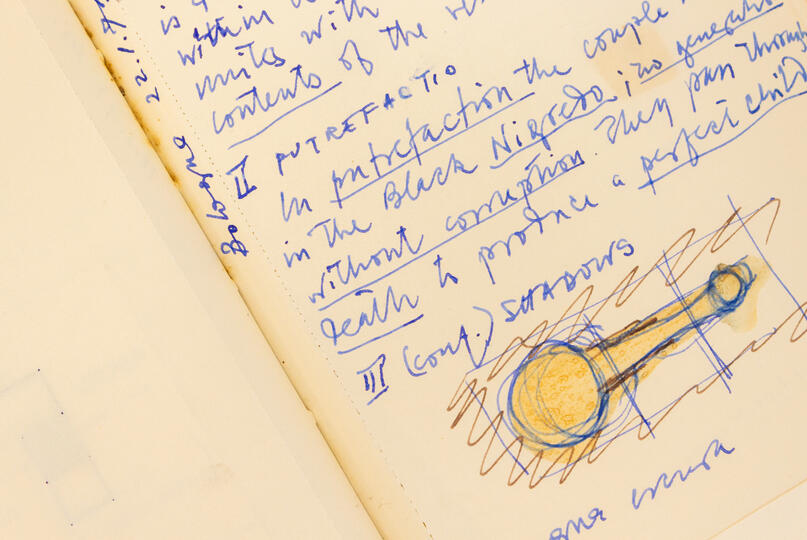 is
within
unites with
contents of the
II PUTREFACTIO
In putrefaction the couple
in the Black Nigredo; no generation
without corruption. They pass through
death to produce a perfect child
III (cont.) SHADOWS
Bologna 22.1.7